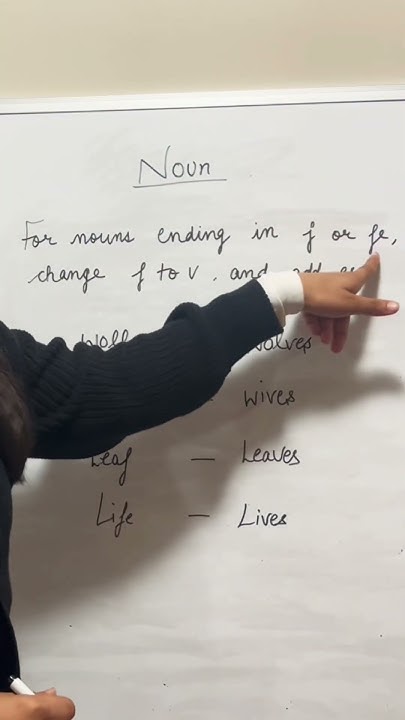 Noun
For nouns ending in f or fe,
change f to v, and add
Wolf wolves
wives
Leaf — Leaves
Life — Lives